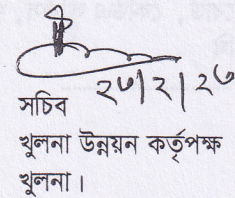 ২৩|২|২৬
সচিব
খুলনা উন্নয়ন কর্তৃপক্ষ
খুলনা।